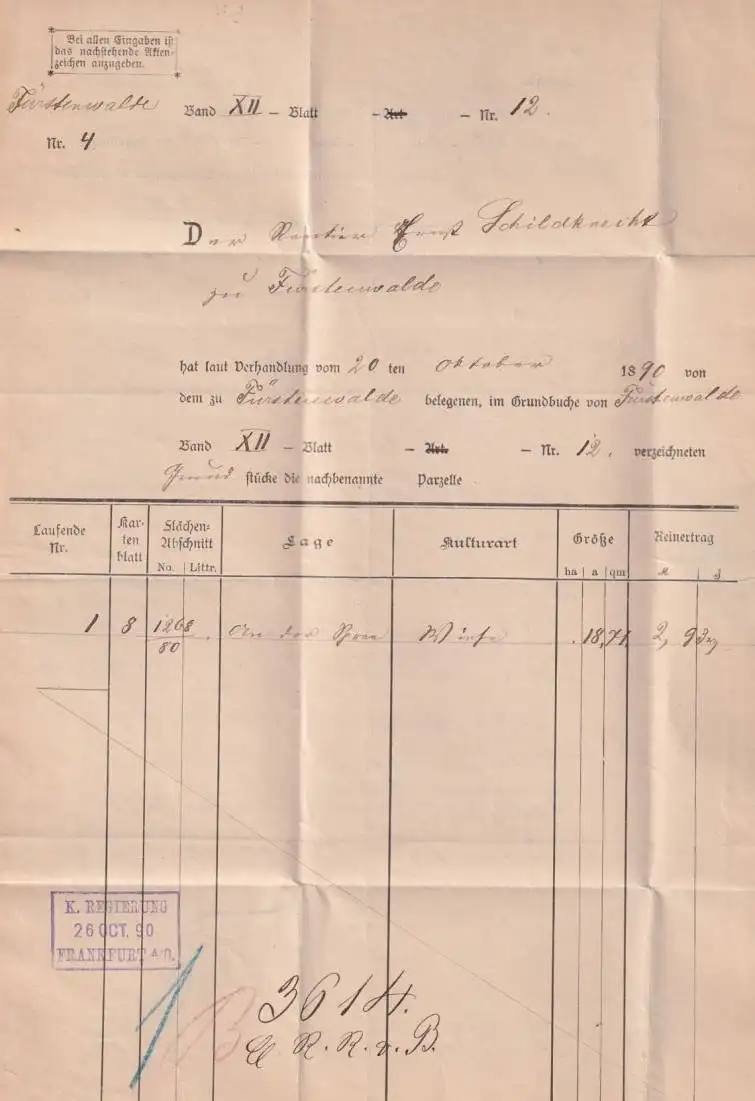 Bei allen Eingaben ist
das nachstehende Akten-
zeichen anzugeben.
Fürstenwalde Band XII – Blatt – Art – Nr. 12.
Nr. 4
Der Rentier Ernst Schildknecht
zu Fürstenwalde
hat laut Verhandlung vom 20 ten Oktober 1890 von
dem zu Fürstenwalde belegenen, im Grundbuche von Fürstenwalde
Band XII – Blatt – Art. – Nr. 12. verzeichneten
Grund stücke die nachbenannte Parzelle
Laufende Nr. Kar-ten blatt Flächen-Abschnitt No. Littr. Lage Kulturart Größe ha a qm Reinertrag M
1 8 1268/80 An der Spree Wiese . 18,71 2,93
K. REGIERUNG
26 OCT. 90
FRANKFURT A/O.
1 B
3614.
R. R. v. B.